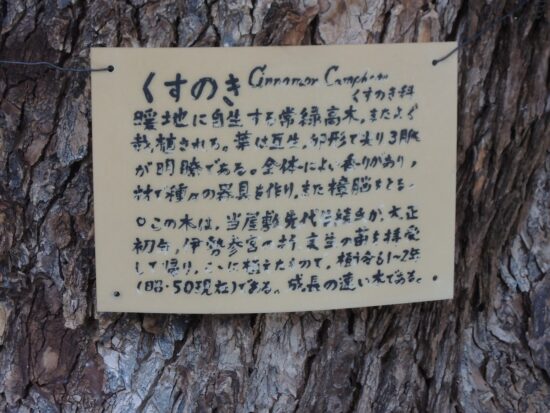 くすのき Cinnamor Camphora
くすのき科
暖地に自生する常緑高木。またよく
栽植される。葉は互生、卵形で尖り3脈
が明瞭である。全体によい香りがあり、
材で種々の器具を作り、また樟脳をとる。
○この木は、当屋敷先代 が、大正
初年、伊勢参宮の折、 の苗を拝受
して帰り、ここに植えたもので、 61〜2年
(昭・50現在)である。成長の速い木である。